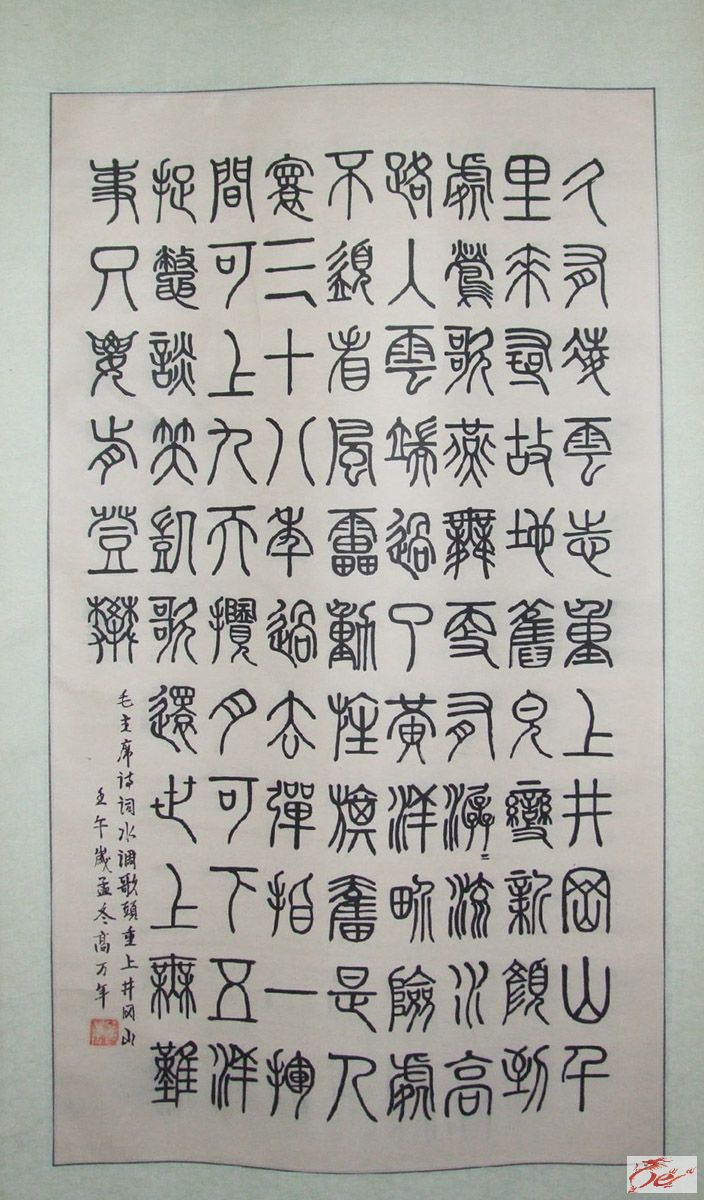 久有凌雲志重上井岡山千
里來尋故地舊皃變新顏到
處鶯歌燕舞更有潺〻流水高
路入雲端過了黃洋界險處
不須看風雷動旌旗奮是人
寰三十八年過去彈指一揮
間可上九天攬月可下五洋
捉鱉談笑凱歌還世上無難
事只要肯登攀
毛主席诗词水调歌頭重上井冈山
壬午歲孟冬高万年